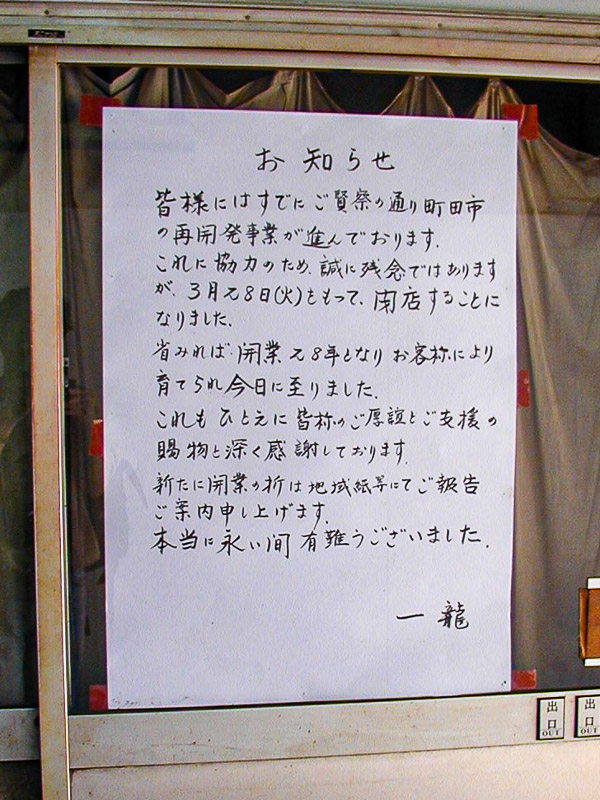 お知らせ
皆様にはすでにご賢察の通り町田市
の再開発事業が進んでおります.
これに協力のため、誠に残念ではあります
が、3月28日(火)をもって、閉店することに
なりました.
省みれば、開業28年となりお客様により
育てられ今日に至りました.
これもひとえに皆様のご厚誼とご支援の
賜物と深く感謝しております.
新たに開業の折は地域紙等にてご報告
ご案内申し上げます.
本当に永い間有難うございました.
一龍
出口
OUT
出口
OUT